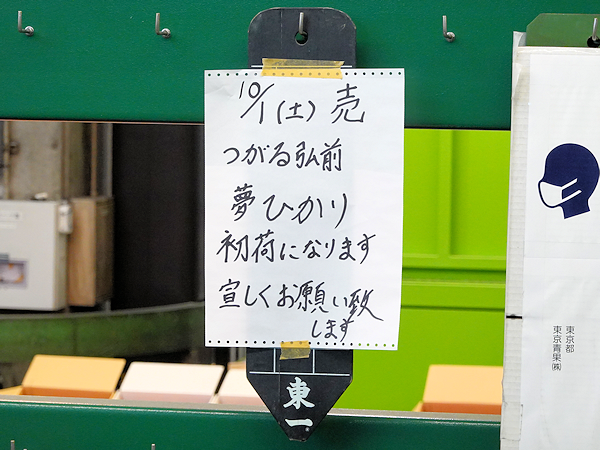 10/1(土) 売
つがる弘前
夢ひかり
初荷になります
宜しくお願い致
します
東一
東京都
東京青果㈱